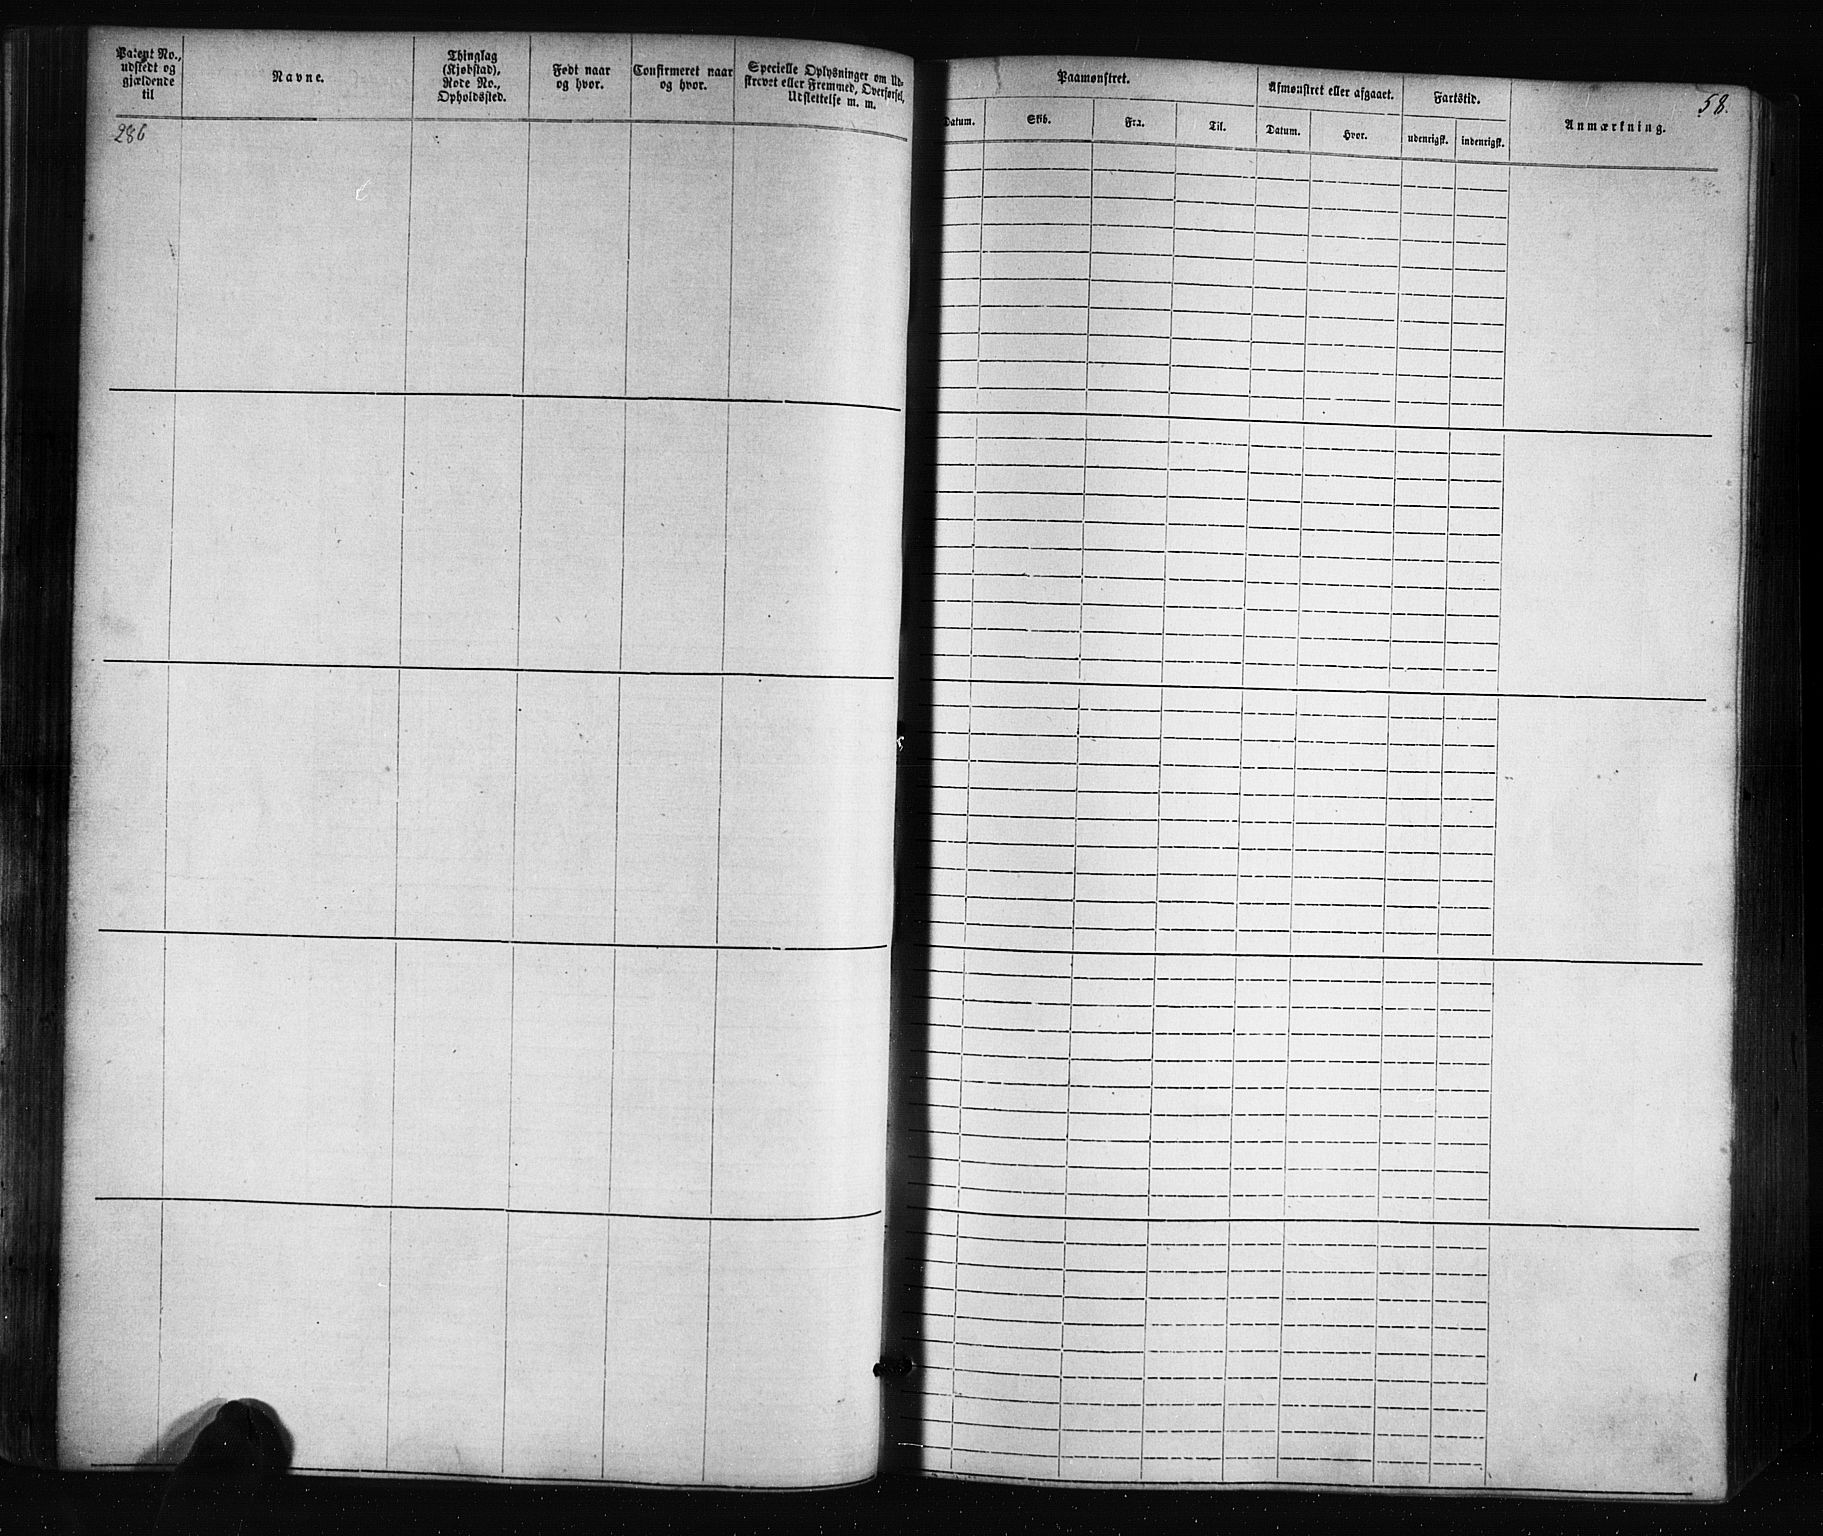 Patent No.,
udstedt og
gjældende
til
Navne.
Thinglag
(Kjøbstad),
Rode No.,
Opholdssted.
Født naar
og hvor.
Confirmeret naar
og hvor.
Specielle Oplysninger om Ud-
skrevet eller Fremmed, Overførsel,
Udslettelse m. m.
286
58.
Paamønstret.
Afmønstret eller afgaaet.
Fartstid.
Anmærkning.
Datum.
Skib.
Fra.
Til.
Datum.
Hvor.
udenrigsk.
indenrigsk.